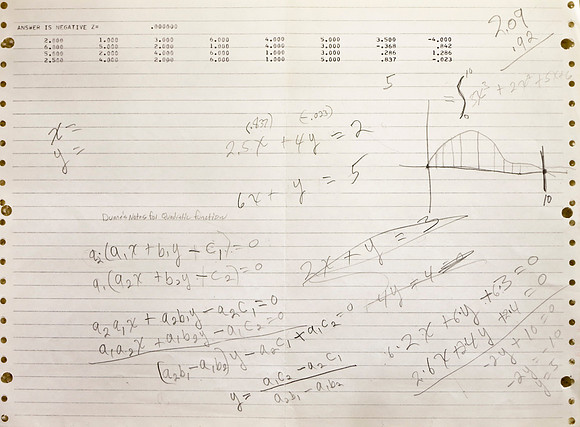 ANSWER IS NEGATIVE Z= .000000
2.000 1.000 3.000 6.000 4.000 3.000 3.500 -4.000
6.000 5.000 2.000 6.000 1.000 5.000 -.368 .842
5.000 4.000 1.000 6.000 3.000 3.000 .286 1.286
2.500 4.000 2.000 6.000 1.000 5.000 .837 -.023
2.09
.92
5
x=
y=
(.837) (-.023)
2.5x + 4y = 2
6x + y = 5
10
Notes for Quadratic function
2x + y = 3
a2(a1x + b1y - c1) = 0
a1(a2x + b2y - c2) = 0
4y = 4
a2a1x + a2b1y - a2c1 = 0
a1a2x + a1b2y - a1c2 = 0
(a2b1 - a1b2)y - a2c1 + a1c2 = 0
y = a1c2 - a2c1
a2b1 - a1b2
6·2x + 6y + 6·3 = 0
-2y + 10 = 0
-2y = -10
y = 5